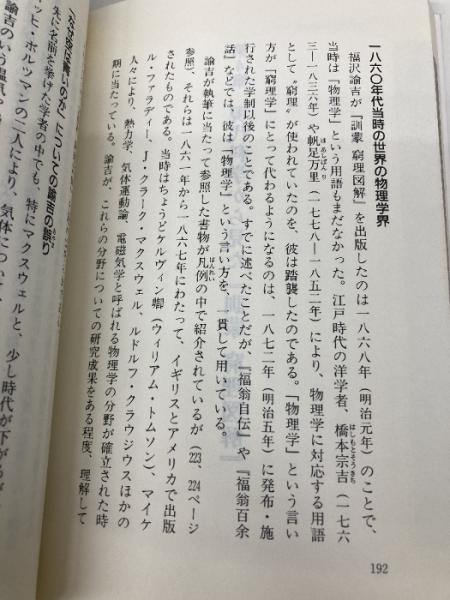 一八六〇年代当時の世界の物理学界
福沢諭吉が『訓蒙 窮理図解』を出版したのは一八六八年（明治元年）のことで、
当時は「物理学」という用語もまだなかった。江戸時代の洋学者、橋本宗吉（一七六
三―一八三六年）や帆足万里（一七七八―一八五二年）により、物理学に対応する用語
として〝窮理〟が使われていたのを、彼は踏襲したのである。「物理学」という言い
方が「窮理学」にとって代わるようになるのは、一八七二年（明治五年）に発布・施
行された学制以後のことである。すでに述べたことだが、『福翁自伝』や『福翁百余
話』などでは、彼は「物理学」という言い方を、一貫して用いている。
諭吉が執筆に当たって参照した書物が凡例の中で紹介されているが（223、224ページ
参照）、それらは一八六一年から一八六七年にわたって、イギリスとアメリカで出版
されたものである。当時はちょうどケルヴィン卿（ウィリアム・トムソン）、マイケ
ル・ファラデイー、J・クラーク・マクスウェル、ルドルフ・クラウジウスほかの
人々により、熱力学、気体運動論、電磁気学と呼ばれる物理学の分野が確立された時
期に当たっている。諭吉が、これらの分野についての研究成果をある程度、理解して
についての諭吉の誤り
先に名前を挙げた学者の中でも、特にマクスウェルと、少し時代が下がるが
ッヒ・ボルツマンの二人により、気体について
諭吉のいう温気や
192